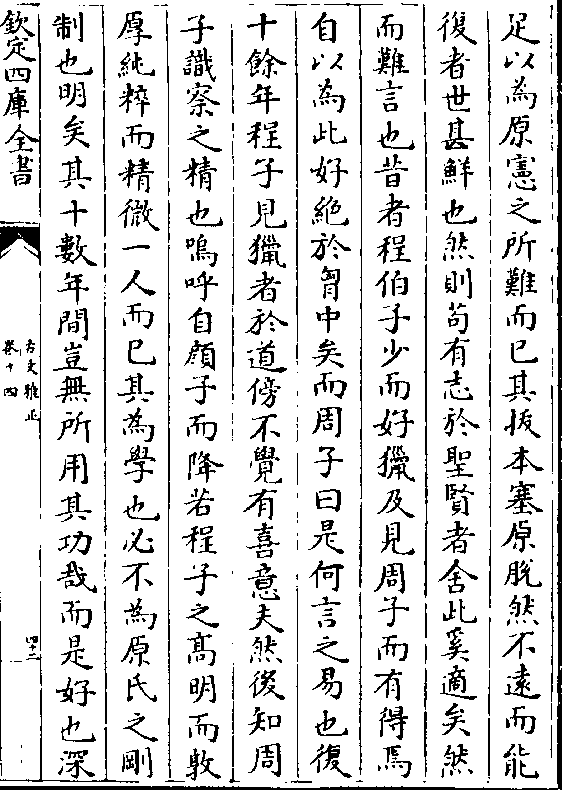 足以為原憲之所難而已其拔本塞原脫然不遠而能
復者世甚鮮也然則苟有志於聖賢者舍此奚適矣然
而難言也昔者程伯子少而好獵及見周子而有得焉
自以為此好絶於胷中矣而周子曰是何言之易也復
十餘年程子見獵者於道傍不覺有喜意夫然後知周
子識察之精也嗚呼自顔子而降若程子之髙明而敦
厚純粹而精微一人而已其為學也必不為原氏之剛
制也明矣其十數年間豈無所用其功哉而是好也深
欽定四庫全書
古文雅正
卷十四
四十二